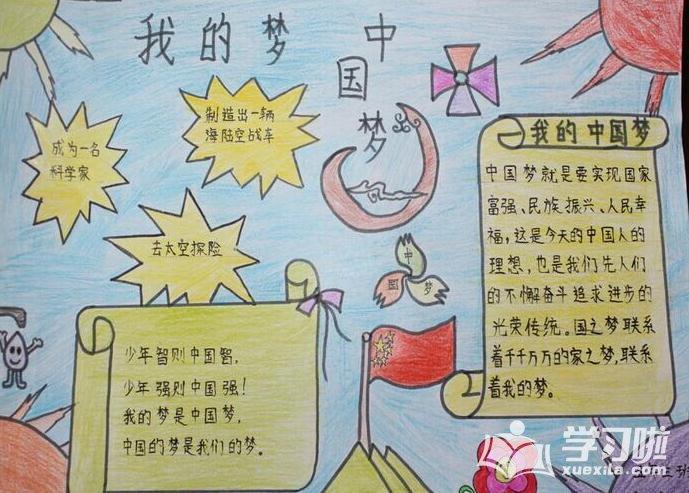 我的梦
中国梦
成为一名
科学家
制造出一辆
海陆空战车
去太空探险
中
国 梦
少年智则中国智,
少年强则中国强!
我的梦是中国梦,
中国的梦是我们的梦。
我的中国梦
中国梦就是要实现国家
富强、民族振兴、人民幸
福,这是今天的中国人的
理想,也是我们先人们
的不懈奋斗追求进步的
光荣传统。国之梦联系
着千千万万的家之梦,联系
着我的梦。
学习啦
xuexila.com
班